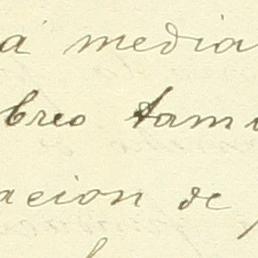 á media
breo tam
acion de